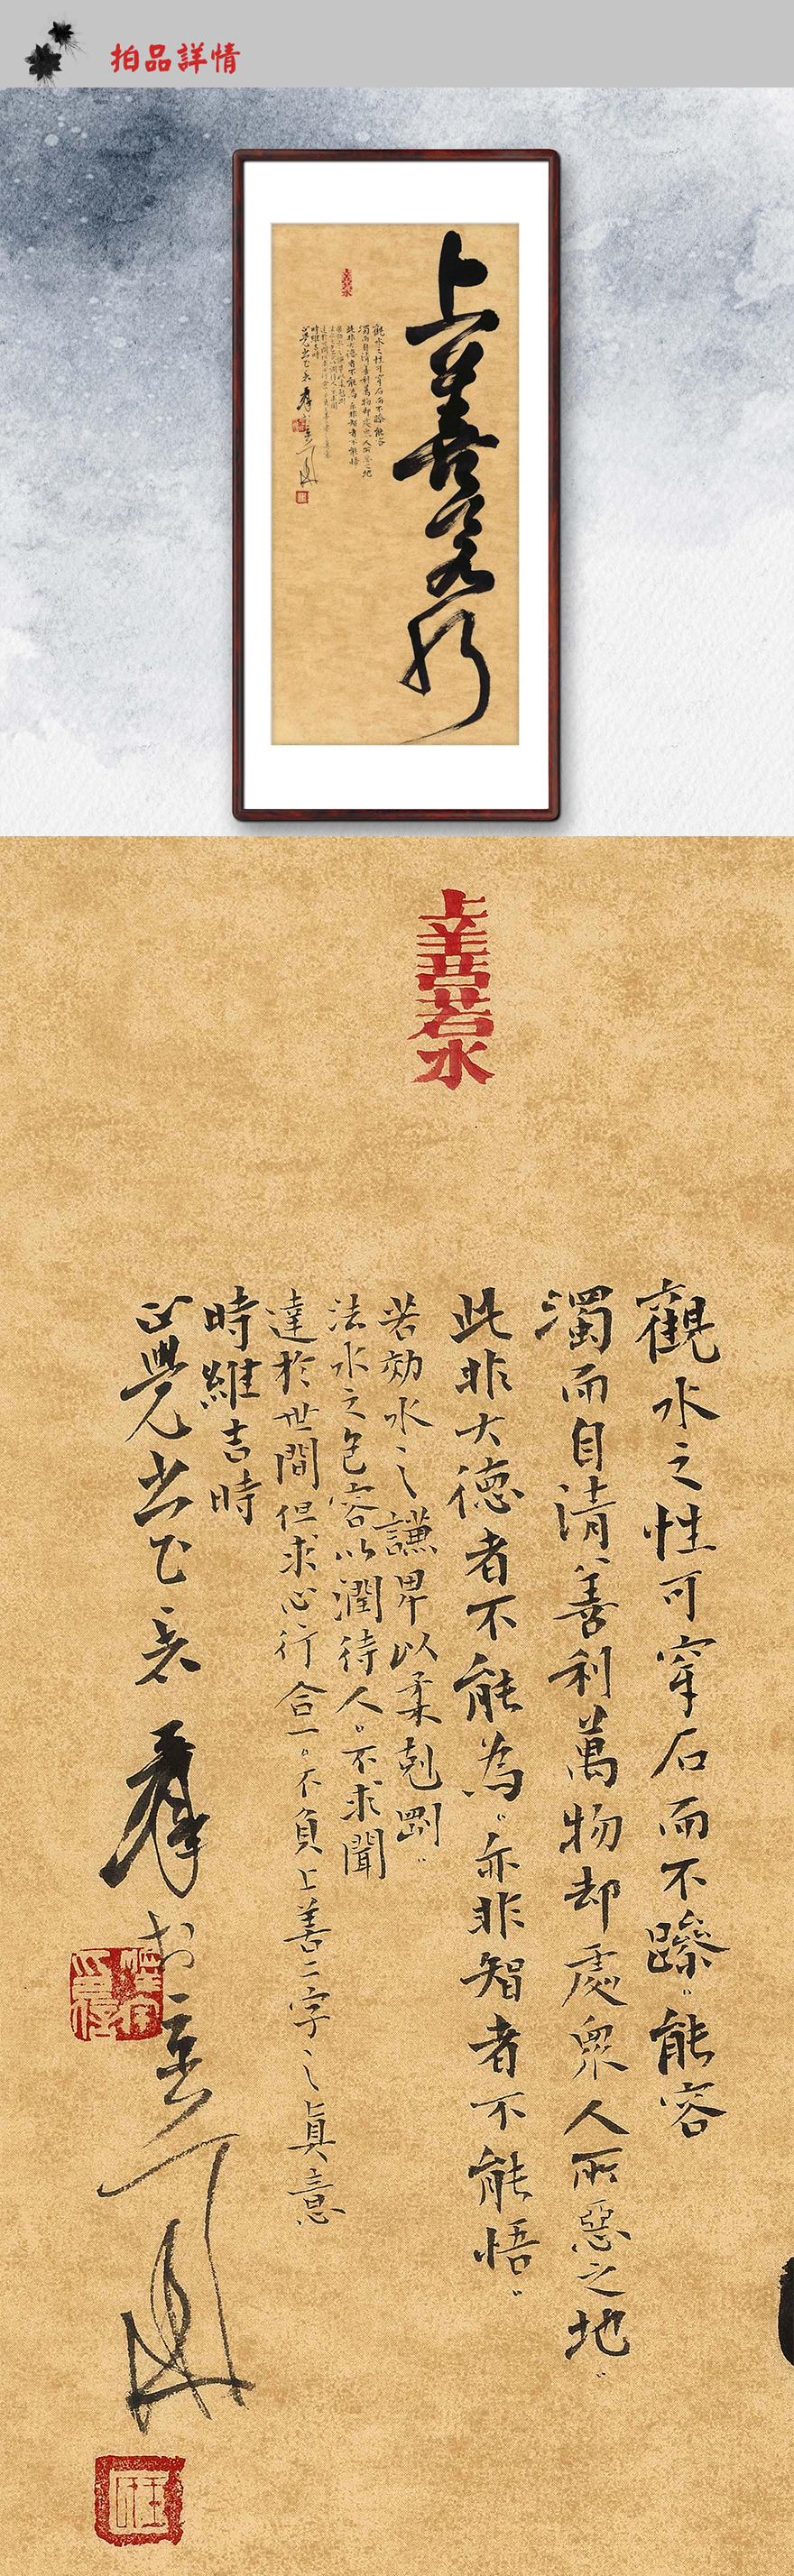 拍品詳情
上善若水
上善若水
觀水之性可穿石而不躁。能容
濁而自清善利萬物却處衆人所惡之地。
此非大德者不能為。亦非智者不能悟。
若効水之謙卑以柔剋剛。
法水之包容以潤待人。不求聞
達於世間但求心行合一。不負上善二字之真意
時維吉時
正覺